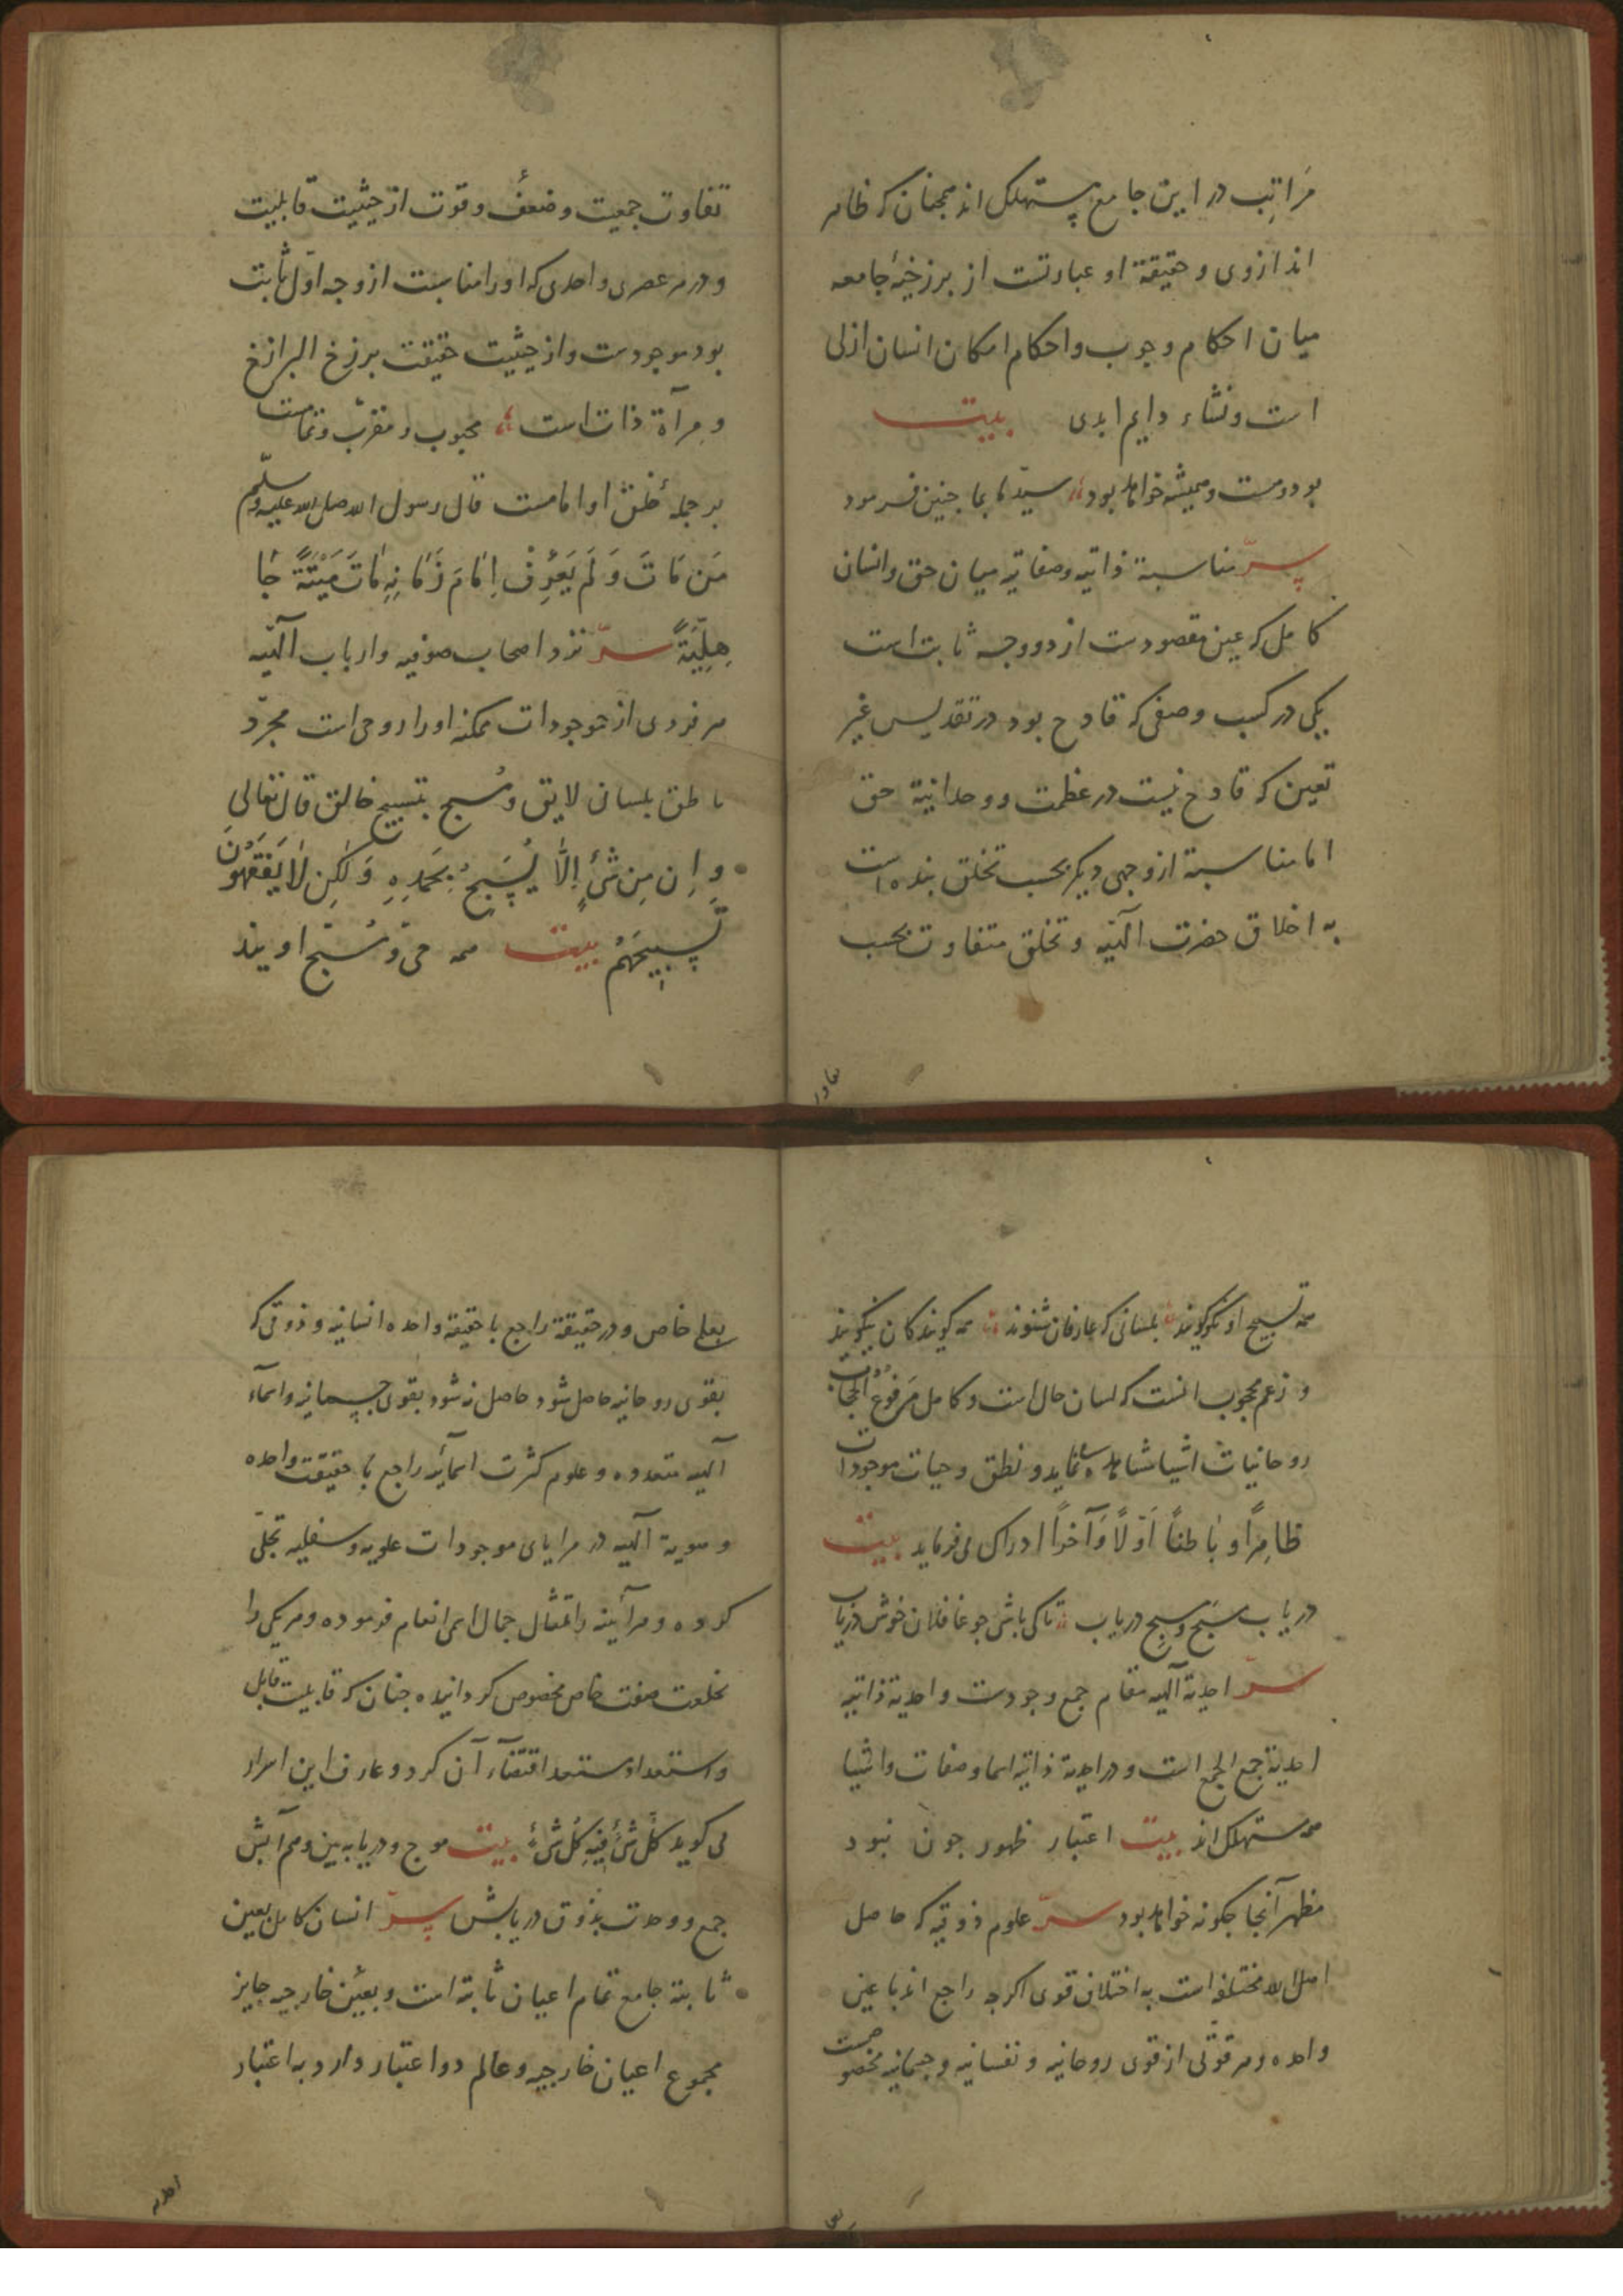 مَراتِب در این جامع مستهلک اند همچنان که ظاهر
اند ازوی و حقیقة او عبارتست از برزخیهٔ جامعه
میان احکام وجوب و احکام امکان انسان ازلی
است و نشاء دایم ابدی بیت
بود و هست و همیشه خواهد بود سیّد ما بما چنین فرمود
سرّ مناسبة ذاتیه و صفاتیه میان حق و انسان
کامل که عین مقصودست از دو وجه ثابت است
یکی در کسب وصفی که قادح بود در تقدیس غیر
تعین که قادح نیست در عظمت و وحدانیة حق
اما مناسبة از وجهی دیگر بحسب تخلق بنده است
به اخلاق حضرت الٓهیّه و تخلق متفاوت بحسب
تفاو
تفاوت جمعیت و ضعف و قوت از حیثیت قابلیت
و در هر عصری واحدی که اورا مناسبت از وجه اوّل ثابت
بود موجودست و از حیثیت حقیقت برزخ البرازخ
و مرآة ذات است محبوب و مقرّب و تمامست
بر جملهٔ خلق او امامست قال رسول الله صلی الله علیه وسلّم
مَن مَاتَ وَ لَم یَعْرِفْ اِمَامَ زَمَانِهِ مَاتَ مَیْتَةً جَا
هِلِیَّةً سرّ نزد اصحاب صوفیه و ارباب الٓهیّه
هر فردی از موجودات ممکنه اورا روحی است مجرّد
ناطق بلسان لایق و مُسبح بتسبیح خالق قال تعالی
وَ اِن مِن شَیْءٍ اِلَّا یُسَبِّحُ بِحَمْدِهِ وَ لٰکِن لَا یَفْقَهُونَ
تَسبِیحَهُمْ بیت همه حیّ و مُسبّح اویند
همه تسبیح او نکو گویند بلسانی که عارفان شنوند همه گویندکان نیکویند
و زعم محجوب انست که لسان حال است و کامل مَرفوعُ الحجاب
روحانیات اشیا مشاهده می نماید و نطق و حیات موجودات
ظاهِراً و باطناً اوّلاً و آخراً ادراک می فرماید بیت
دریاب مسبَّح و مسبِّح دریاب تاکی باشی جو غافلان خوش در یاب
سرّ احدیة الٓهیه مقام جمع وجودست و احدیة ذاتیه
احدیة جمع الجمع است و در احدیة ذاتیه اسما و صفات و اشیا
همه مستهلک اند بیت اعتبار ظهور جون نبود
مظهر آنجا جکونه خواهد بود سرّ علوم ذوقیه که حاصل
اهل الله مختلفه است به اختلاف قوی اکرجه راجع اند با عین
واحده و هر قوتی از قوی روحانیه و نفسانیه و جسمانیه مخصوصست
بعلمی خاص و در حقیقة راجع با حقیقة واحده انسانیه و ذوقی که
بقوی روحانیه حاصل شود حاصل نشود بقوی جسمانیه و اسمآء
الٓهیه متعدده و علوم کثرت اسمآئیه راجع با حقیقت واحده
و هویة الٓهیه در مرایای موجودات علویه و سفلیه تجلّی
کرده و هر آئینه را تمثال جمال اسمی انعام فرموده و هر یکی را
بخلعت صفت خاص مخصوص کردانیده جنان که قابلیت قابل
و استعداد مستعد اقتضآء آن کرد و عارف این اسرار
می کوید کُلُّ شَیْءٍ فِیهِ کُلُّ شَیْءٍ بیت موج و دریا به بین و هم آبش
جمع و وحدت بذوق دریابش سرّ انسان کامل بعین
ثابتة جامع تمام اعیان ثابته است و بعین خارجیه جایز
مجموع اعیان خارجیه و عالم دو اعتبار دارد به اعتبار